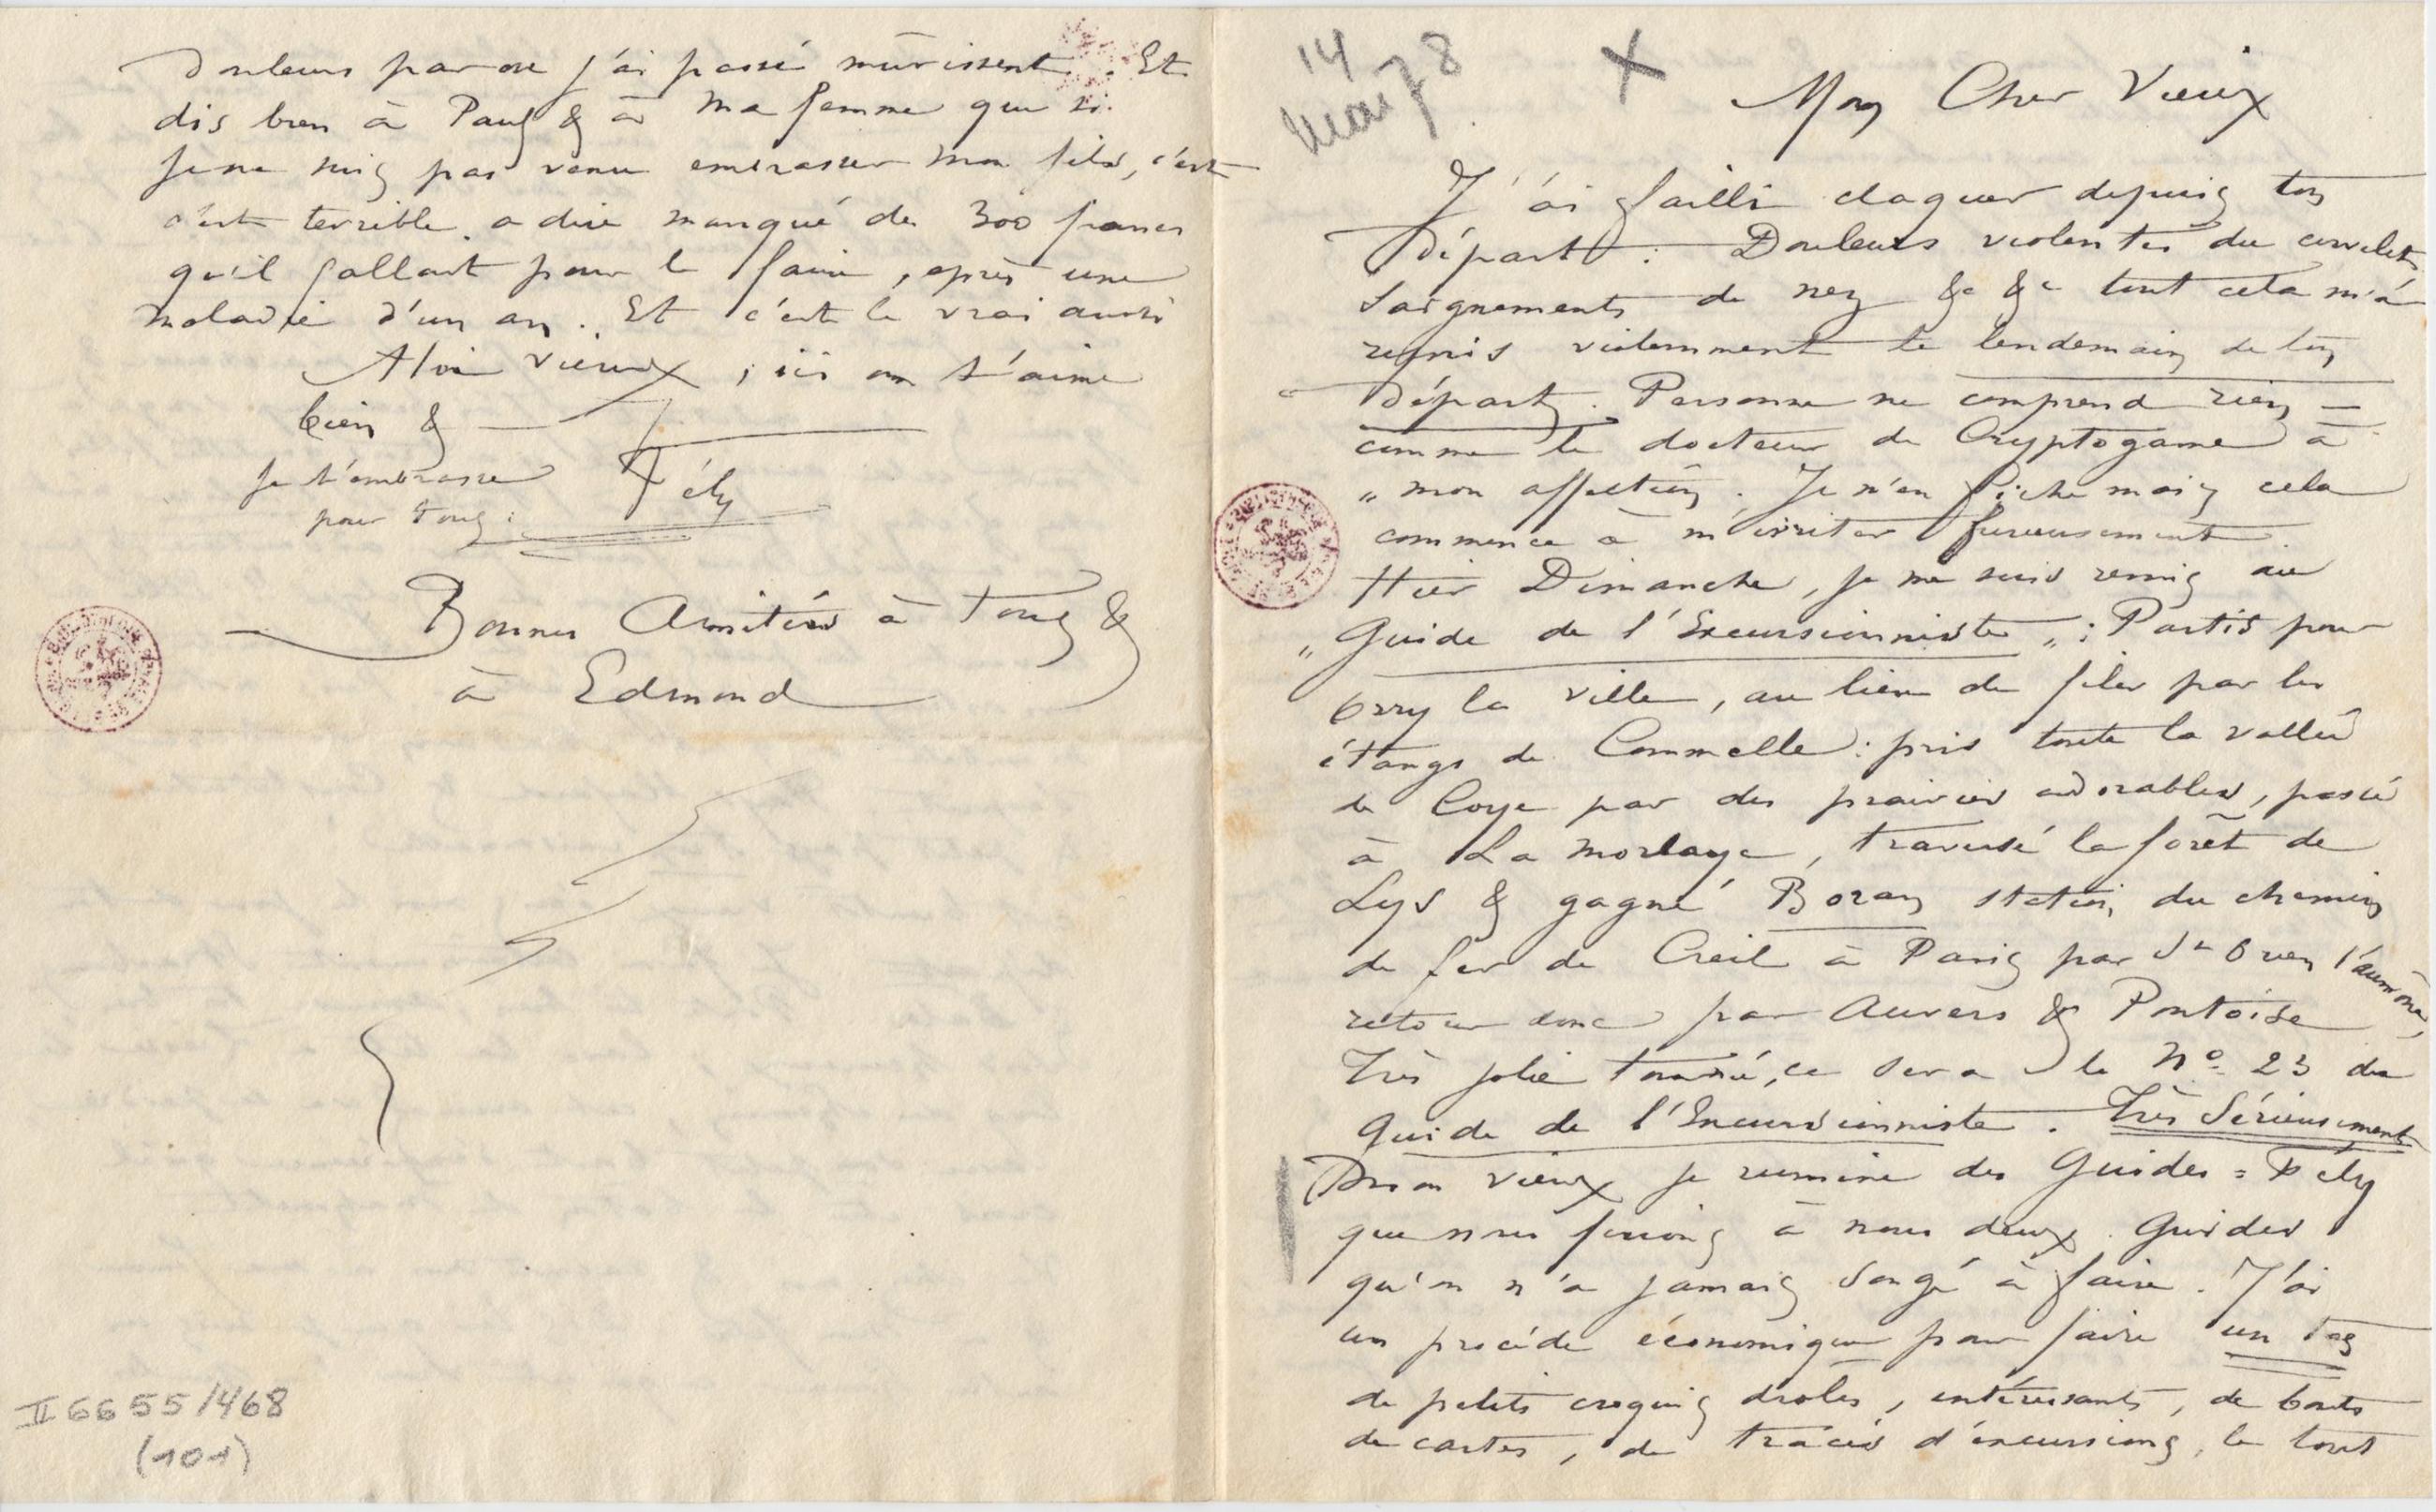 14
Mai 78
X
Mon Cher Vieux
J'ai failli claquer depuis ton
départ : Douleurs violentes du cervelet,
saignements de nez &c &c tout cela m'a
repris violemment le lendemain de ton
départ. Personne ne comprend rien —
comme le docteur de Cryptogame à
„ mon affection. Je m'en fiche mais cela
commence à m'irriter furieusement.
Hier Dimanche, je me suis remis au
„ Guide de l'Excursionniste „ : Partis pour
Orry la ville, au lieu de filer par les
étangs de Commelle : pris toute la vallée
de Coye par des prairies adorables, passé
à La Morlaye, traversé la forêt de
Lys & gagné Boran station du chemin
de fer de Creil à Paris par St Ouen l'aumône,
retour donc par Auvers & Pontoise
Très jolie tournée, ce sera le No 23 du
Guide de l'Excursionniste. Très Sérieusement
mon vieux je rumine des Guides = Fély
que nous ferions à nous deux. Guides
qu'on n'a jamais songé à faire. J'ai
un procédé économique pour faire un tas
de petits croquis drôles, intéressants, de bouts
de cartes, de tracés d'excursions, le tout
douleurs par où j'ai passé mûrissent. Et
dis bien à Paul & à ma femme que si
je ne suis pas venu embrasser mon fils, c'est
c'est terrible à dire manqué de 300 francs
qu'il fallait pour le faire, après une
maladie d'un an. Et c'est le vrai aussi
Mon vieux, ici on t'aime
bien & —
je t'embrasse
pour tous.
Fély
Bonnes Amitiés à tous &
à Edmond
II 6655/468
(101)